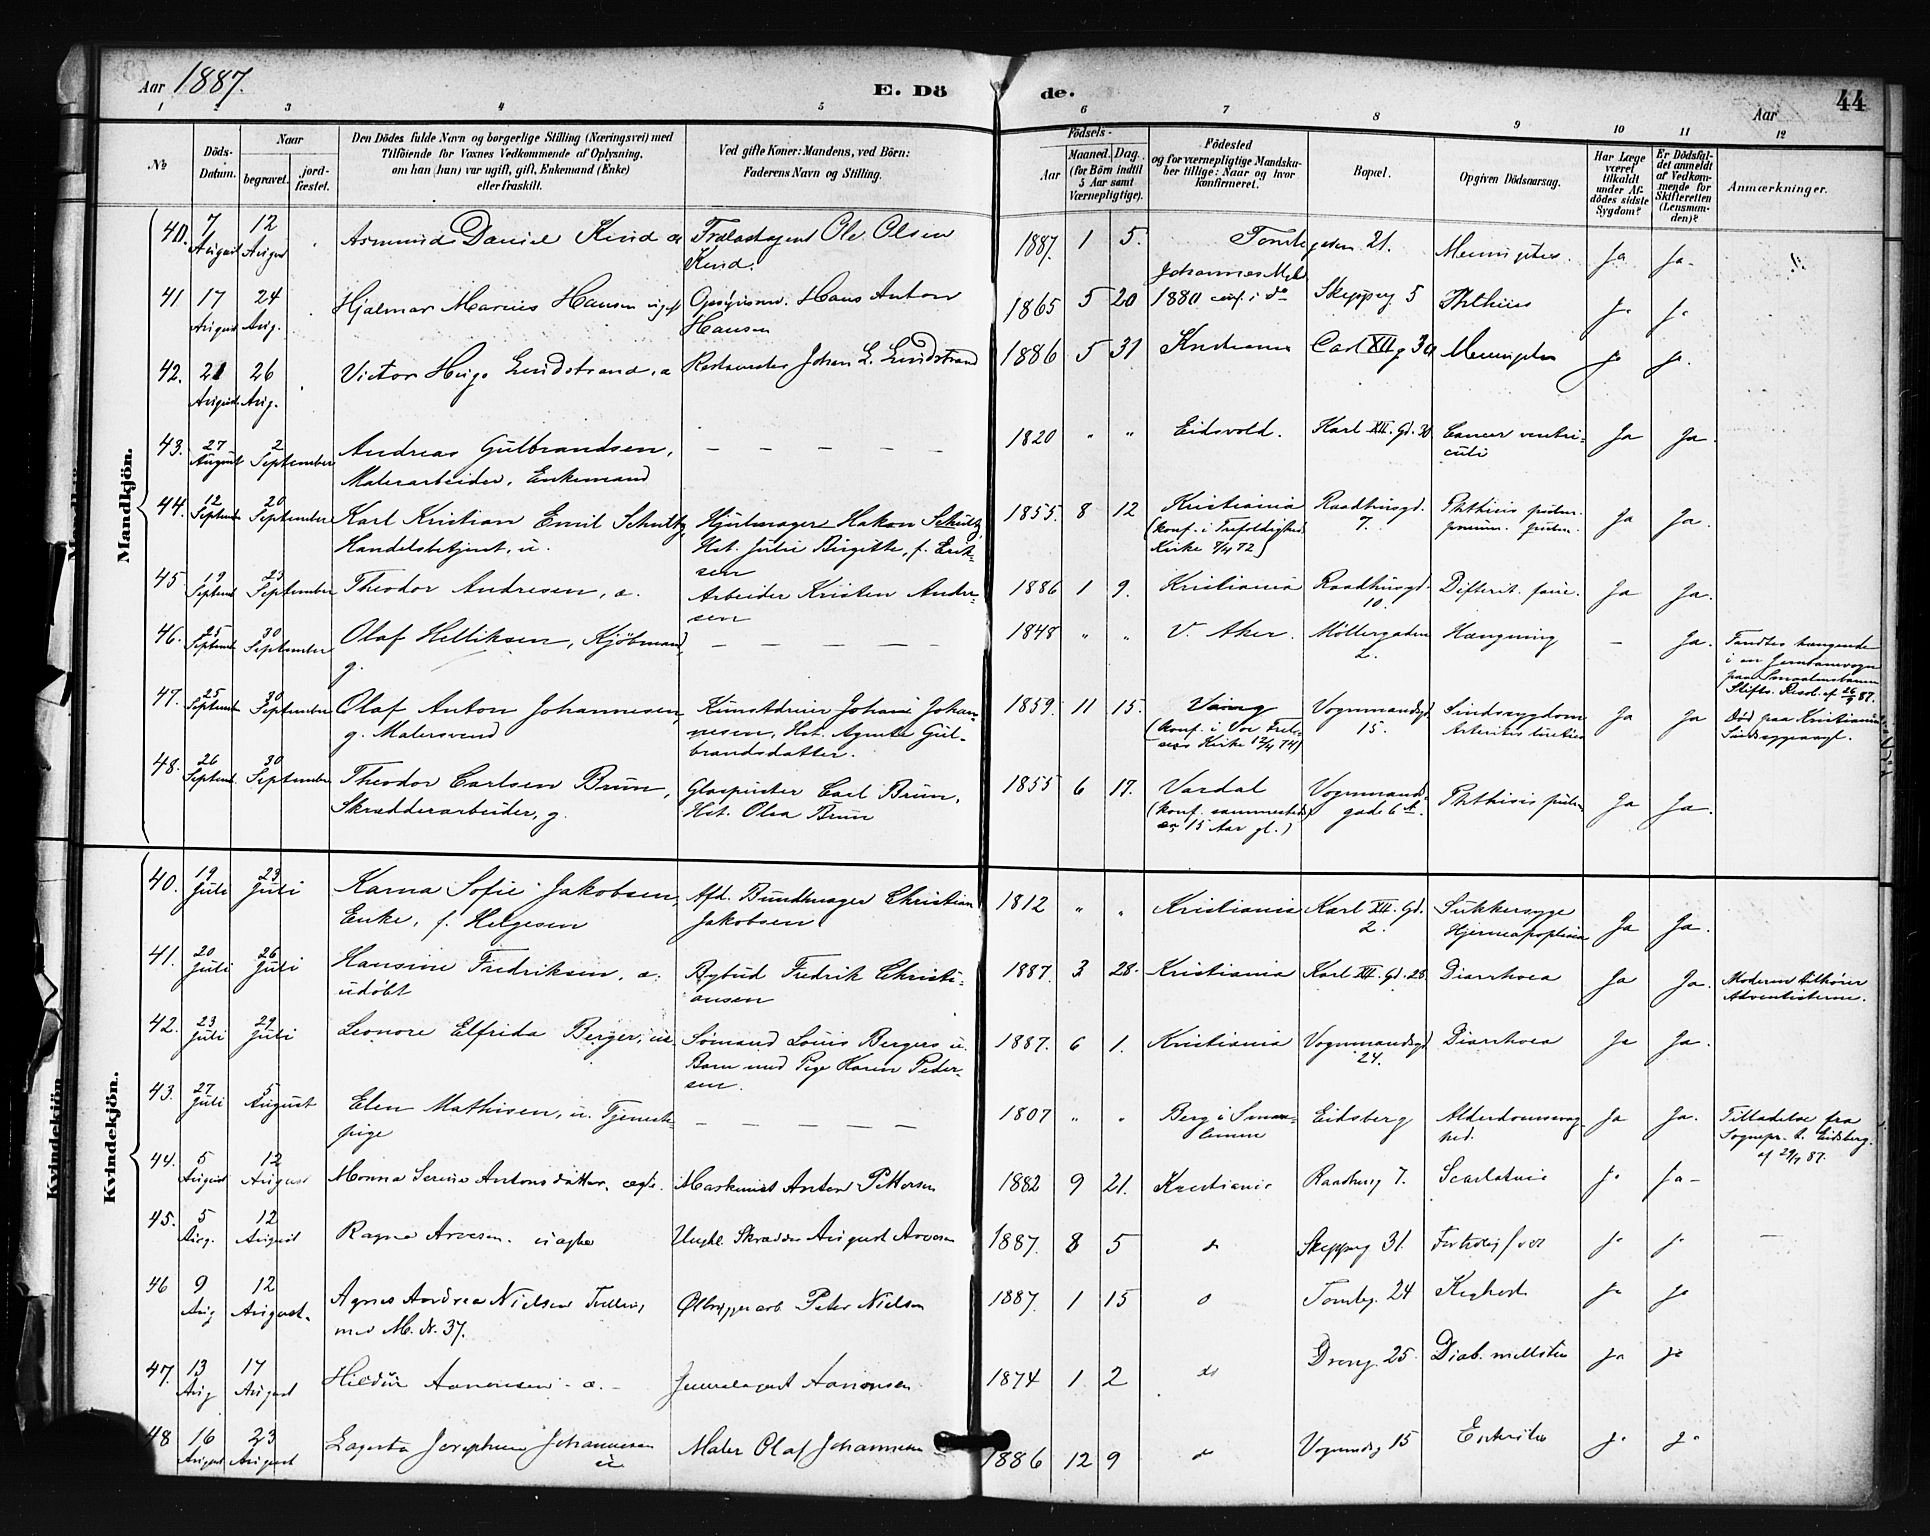 Aar 1887.
E. Dö
de.
Aar
44
1
3
4
5
6
7
8
9
10
11
12
No
Döds-
Datum.
Naar
begravet.
jord-
fæstet.
Den Dödes fulde Navn og borgerlige Stilling (Næringsvei) med
Tilföiende for Voxnes Vedkommende af Oplysning,
om han (hun) var ugift, gift, Enkemand (Enke)
eller fraskilt.
Ved gifte Koner: Mandens, ved Börn:
Faderens Navn og Stilling.
Födsels-
Aar
Maaned.
Dag.
(for Börn indtil
5 Aar samt
Værnepligtige).
Födested
og for værnepligtige Mandska-
ber tillige: Naar og hvor
konfirmeret.
Bopæl.
Opgiven Dödsaarsag.
Har Læge
været
tilkaldt
under Af-
dödes sidste
Sygdom?
Er Dödsfal-
det anmeldt
af Vedkom-
mende for
Skifteretten
(Lensman-
den)?
Anmærkninger.
Mandkjön.
40. 7 August 12 August Daniel Ole Olsen 1887. 1 5. 21. Ja Ja.
41 17 August 24 Aug. Hjalmar Marius Hansen ugift Hans Anton
Hansen 1865 5 20 1880 conf. i do 5 Phthisis Ja Ja
42. 21 August 26 Aug. Victor Hugo Lindstrand, æ Johan L. Lindstrand 1886 5 31 Kristiania Carl XII g 30 Ja Ja.
43. 27 August 2 September Andreas Gulbrandsen, — — — — — 1820 " " Eidsvold. Karl XII. Gd. 30 Cancer ventri-
culi Ja Ja.
Malerarbeider, Enkemand
44. 12 September 20 September Karl Kristian Emil Schultz, Hjulmager Hakon Schultz, 1855. 8 12 Kristiania Raadhusgd. Phthisis pulm. Ja Ja.
Handelsbetjent, u. Hst. Julie Birgitte, f. Erik-
sen (konf. i Trefoldighed 7.
Kirke 7/4 72)
45. 19 September 23 September Theodor Andresen, æ. Arbeider Kristen Andre-
sen 1886 1 9. Kristiania Raadhusgd. 10. Difterit. fauc. Ja Ja.
46. 25 September 30 September Olaf Helliksen, Kjöbmand, — — — — — 1848 " " V. Aker. Möllergaden 2. Hængning — Ja. Fandtes hængende
g. i en Jernbanevogn
paa Smaalensbanen
Stifts. Resol. af 26/9 87.
47. 25 September 30 September Olaf Anton Johannesen, Kunstdreier Johan Johan-
nesen, Hst. Agnete Gul-
brandsdatter. 1859. 11 15. Vang Vognmandsgd. 15. Sindssygdom Ja Ja Död paa Kristiania
g. Malersvend (konf. i Vor Frel-
sers Kirke 12/4 74)
Sindssygeasyl.
48. 26 Septemb. 30 September Theodor Carlsen Brun, Glaspuster Carl Brun, 1855 6 17. Vardal Vognmands-
gade 6 Phthisis pulm. Ja Ja.
Skrædderarbeider, g. Hst. Olea Brun (konf. sammesteds
15 Aar gl.)
Kvindekjön.
40. 19 Juli 23 Juli Karna Sofie Jakobsen, Afd. Bundtmager Christian
Jakobsen 1812 " " Kristiania Karl XII. Gd. 2. Sukkersyge
Hjerneapoplexia Ja Ja.
Enke, f. Helgesen
41. 20 Juli 26 Juli Hansine Fredriksen, æ. Bybud Fredrik Christi-
ansen 1887. 3 28. Kristiania Karl XII. Gd. 28 Diarrhoea Ja Ja. Moderen tilhörer
udöbt Adventisterne.
42. 23 Juli 29 Juli Leonore Elfrida Berger, uæ. Sömand Louis Bergers u.
Barn med Pige Karen Peder-
sen. 1887. 6 1. Kristiania Vognmandsgd. 24. Diarrhoea Ja Ja.
43. 27 Juli 5 August Elen Mathisen, u. Tjeneste-
pige — — — — — 1807 " " Berg i Smaa-
lenene Eidsberg Alderdomssvag-
hed. Ja Ja. Tilladelse fra
Sognepr. t. Eidsberg
af 29/7 87.
44. 5 August 12 August Serine Antonsdatter, ægte. Maskinist Anton Pettersen 1882 9 21. Kristiania Raadhusg 7. Scarlatina Ja Ja
45. 5 Aug. 12 August Ragna Arvesen. uægte Ungkl. Skrædder August Arvesen 1887. 8 5 do 31. Ja Ja —
46 9 Aug 12 August. Agnes Andrea Nielsen Tvilling Peter Nielsen 1887. 1 15 24 Kighoste Ja Ja
med M. N. 37.
47. 13 Aug 17 August Hildur Aanonsen æ. Aanonsen 1874 1 2 do 25. Diab. mellitus Ja Ja
48 16 August 23 August Lagerta Josephine Johannesen Maler Olaf Johannesen 1886 12 9 do 15 Ja Ja
u